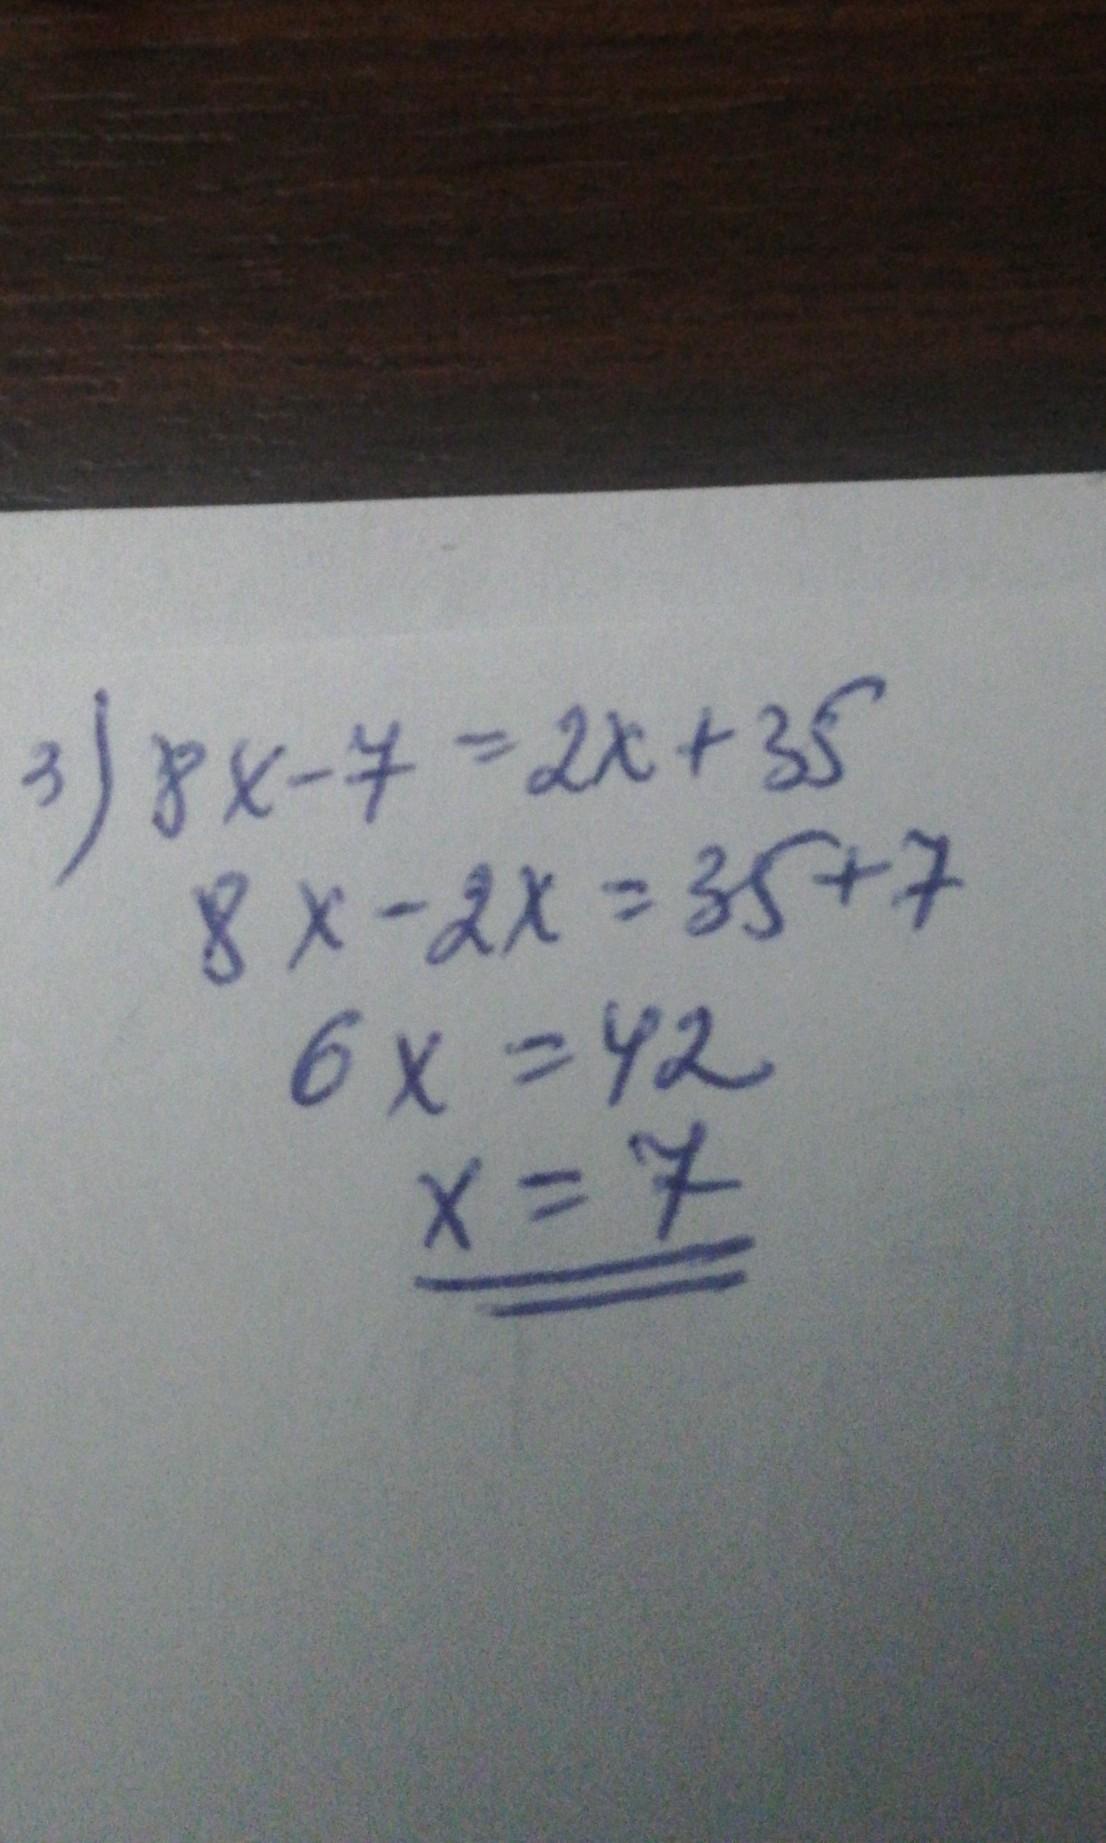 3) 8x-7=2x+35
8x-2x=35+7
6x=42
x=7